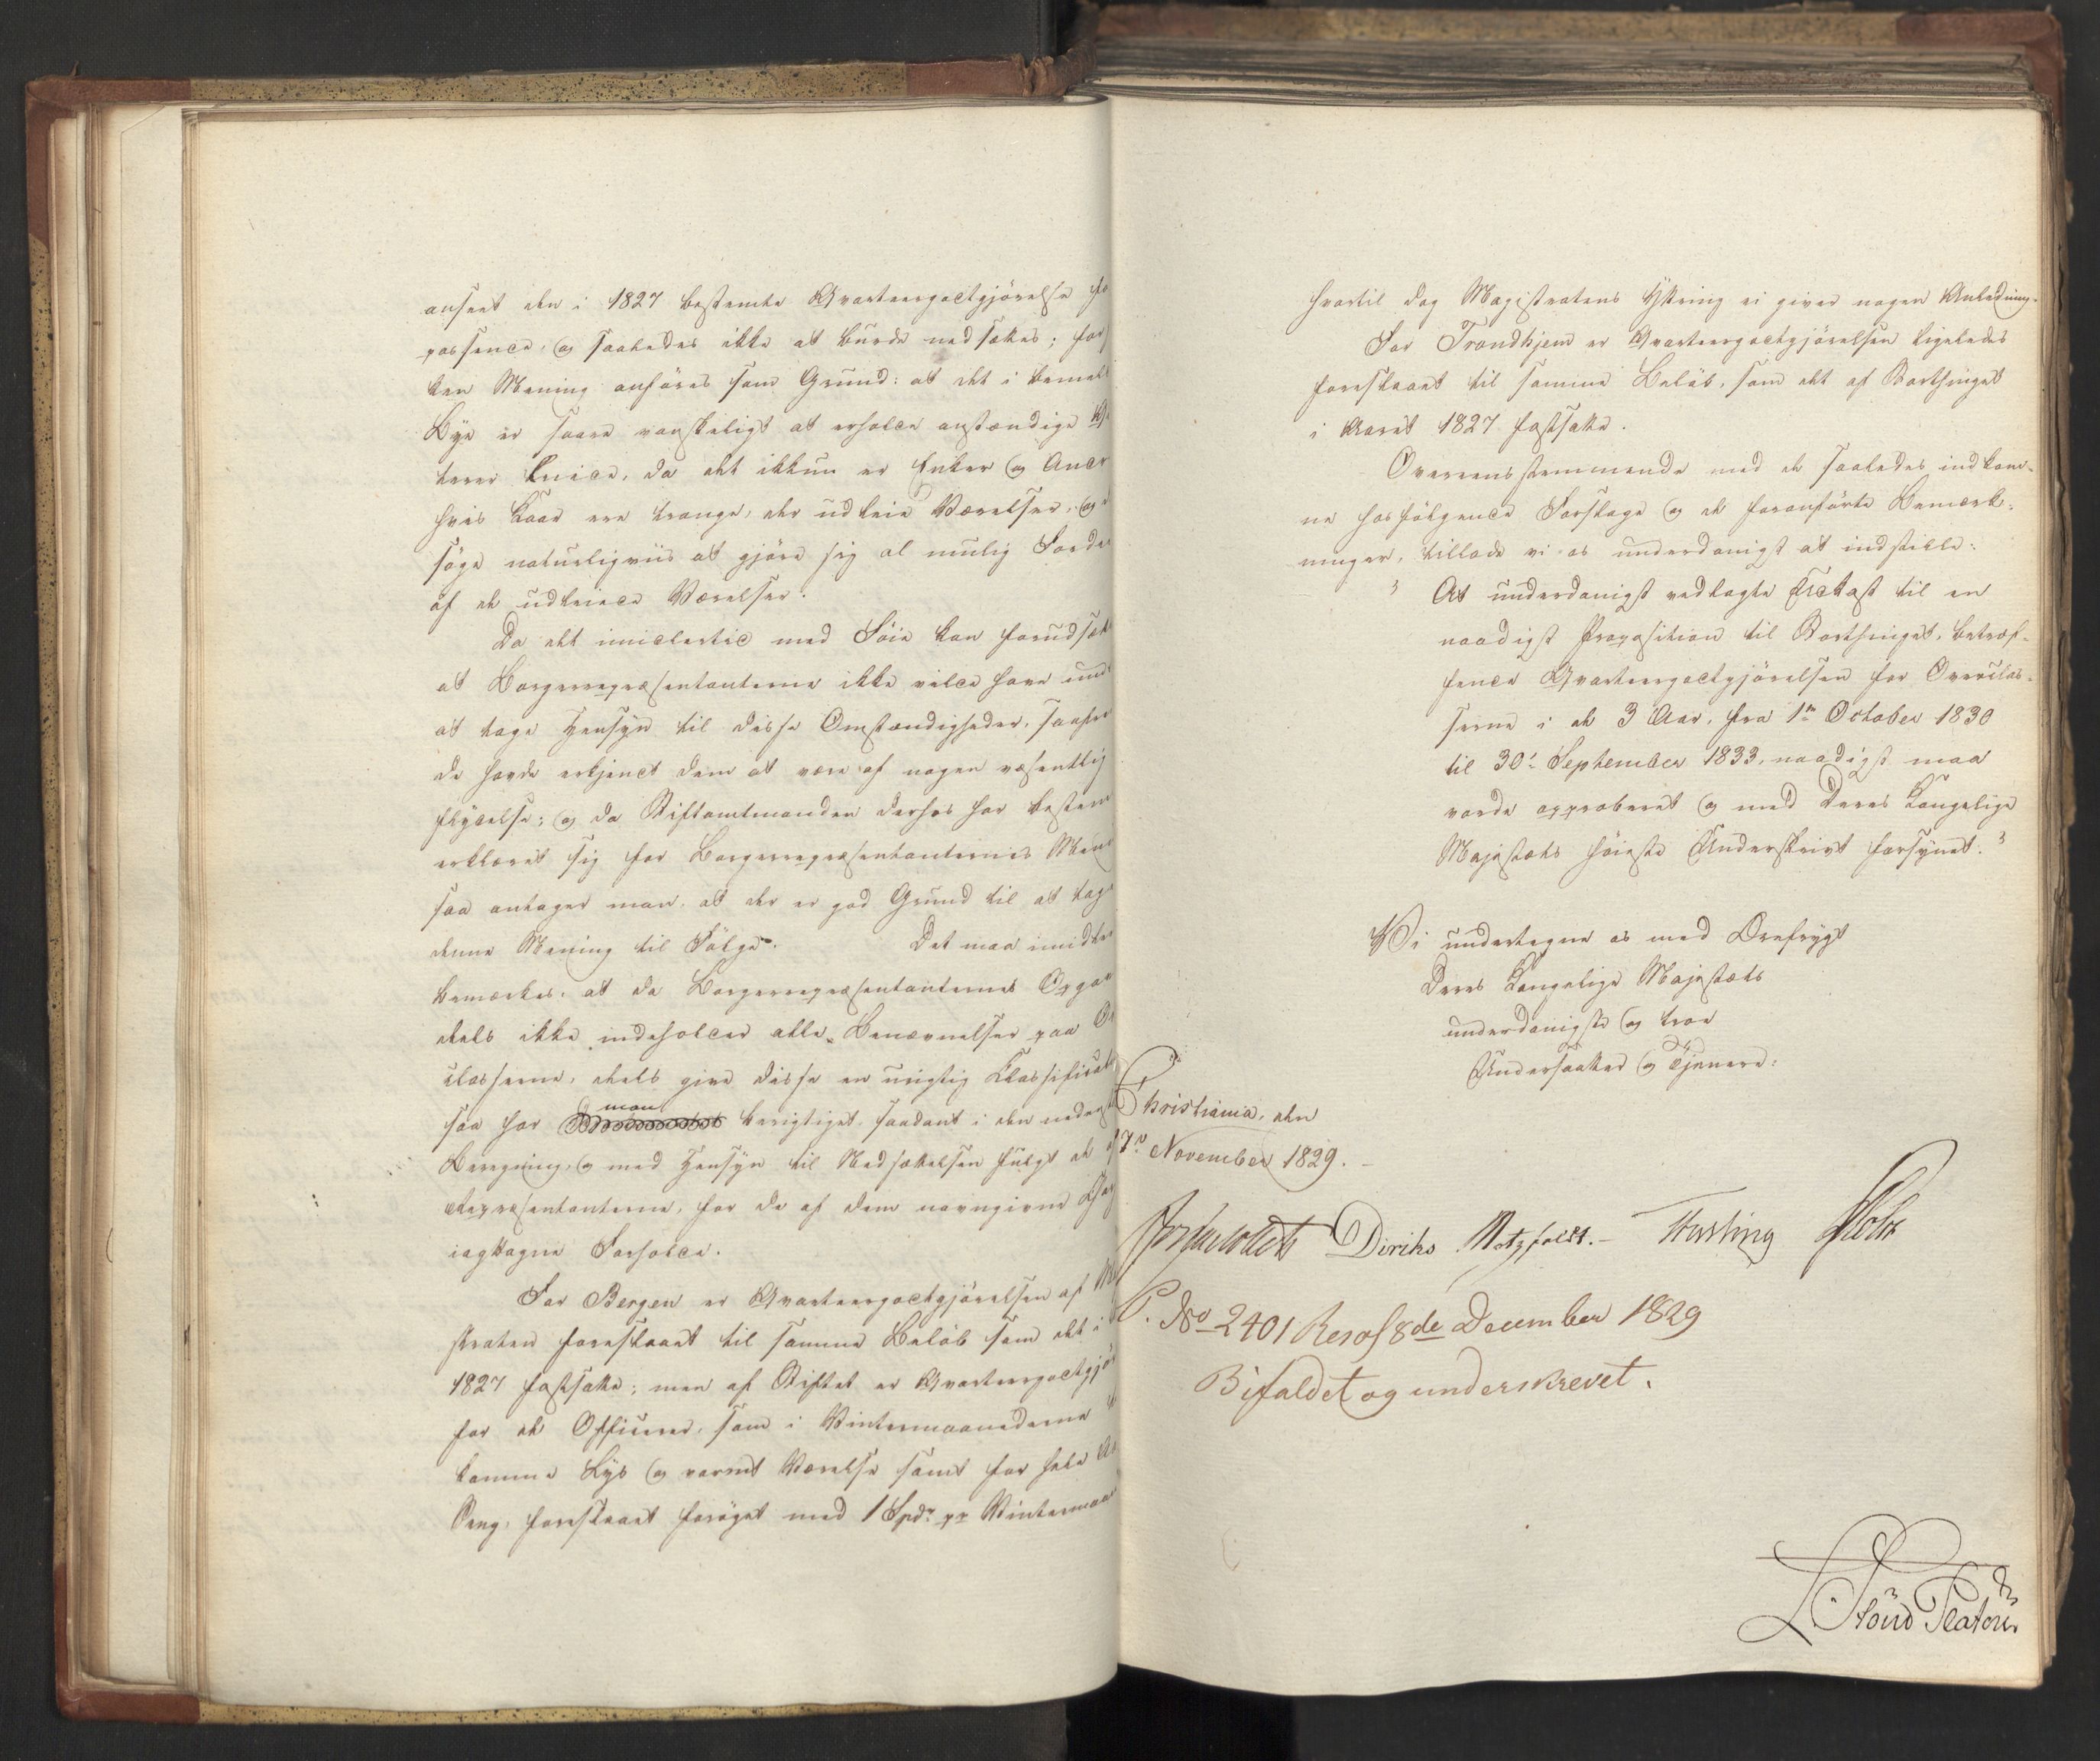 anseet den i 1827 bestemte Qvarteergodtgjörelse
passende, og saaledes ikke at burde nedsættes; for
ken Mening anföres som Grund: at det i bemel
Bye er saare vanskeligt at erholde anstændige
terer leiede, da det ikkun er Enker og Andr
hvis Kaar ere trange, der udleie Værelser, og
söge naturligviis at gjöre sig al mulig Forde
af de udleiede Værelser.
Da det imidlertid med Föie kan forudsætt
at Borgerrepræsentanterne ikke vilde have und
at tage Hensyn til disse Omstændigheder, saafre
de havde erkjendt dem at være af nogen væsentlig
flydelse; og da Stiftamtmanden derhos har bestem
erklæret sig for Borgerrepræsentanternes Mening
saa antager man, at der er god Grund til at tage
denne Mening til Fölge. Det maa imidler
bemærkes, at da Borgerrepræsentanternes Opgav
deels ikke indeholder alle Benævnelser paa
classerne, deels give disse en urigtig Classificati
saa har man berigtiget saadant i den neden
Beregning, og med Hensyn til Nedsættelsen fulgt de af
Repræsentanterne, for de af dem navngivne
iagttagne Forholde.
For Bergen er Qvarteergodtgjörelsen af Ma
straten foreslaaet til samme Belöb som det i
1827 fastsatte; men af Stiftet er Qvarteergodtgjör
for de Officerer, som i Vintermaanederne
komme Lys og varmt Værelse samt for hele
Seng, foreslaaet foröget med 1 Spdr pr Vintermaan
hvortil dog Magistratens Yttring ei giver nogen Anledning.
For Trondhjem er Qvarteergodtgjörelsen ligeledes
foreslaaet til samme Belöb, som det af Storthinget
i Aaret 1827 fastsatte.
Overeensstemmende med de saaledes indkom-
ne hosfölgende Forslage og de foranförte Bemærk-
ninger, tillade vi os underdanigst at indstille:
" At underdanigst vedlagte Udkast til en
naadigst Proposition til Storthinget, betræf-
fende Qvarteergodtgjörelsen for Overclas-
serne i de 3 Aar, fra 1ste October 1830
til 30te September 1833, naadigst maa
vorde approberet og med Deres Kongelige
Majestæts höieste Underskrivt forsynet."
Vi undertegne os med Ærefrygt
Deres Kongelige Majestæts
underdanigste og troe
Undersaatter og Tjenere:
Christiania, den
17de November 1829.
Diriks Motzfeldt. Fasting
P. No 2401 Resol 8de December 1829
Bifaldet og underskrevet.